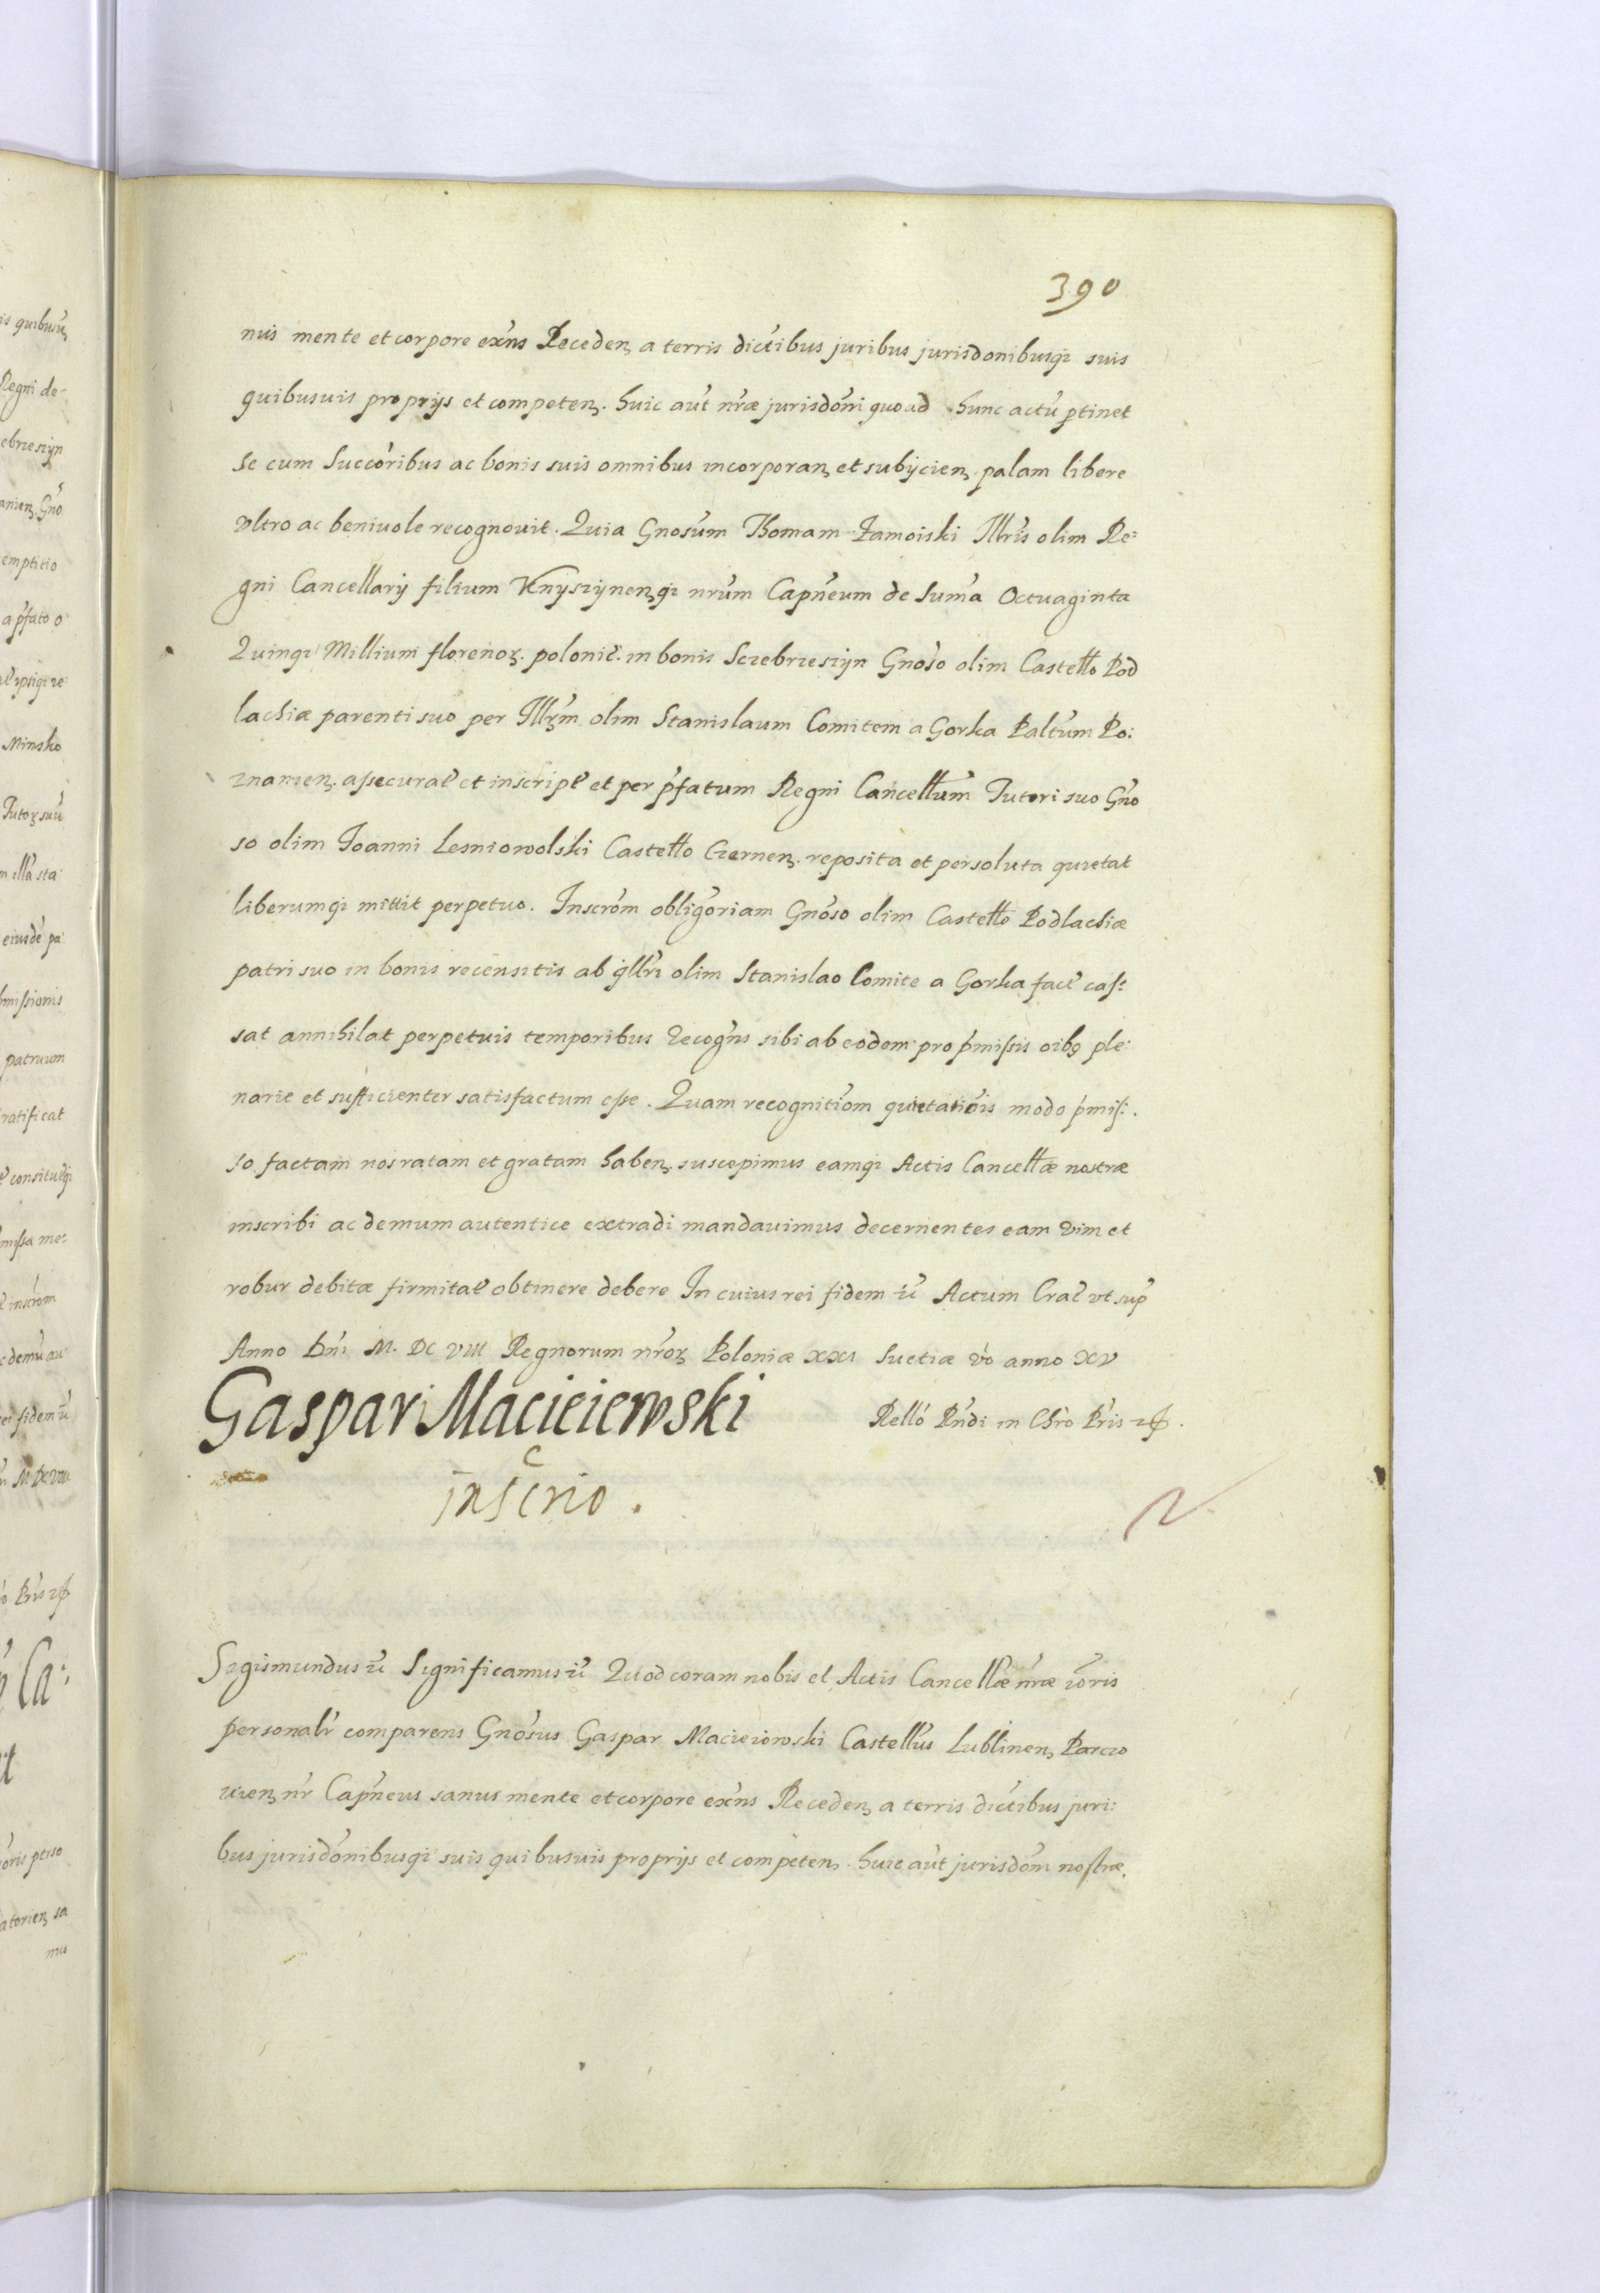 390
nus mente et corpore exñs Receden̄ a terris dictibus juribus jurisdonibusq; suis
quibusuis proprijs et competen̄. huic aut nræ jurisdoni quoad hunc actū ptinet
se cum Succoribus ac bonis suis omnibus incorporan̄ et subijcien̄ palam libere
vltro ac beniuole recognouit. Quia Gnosum Thomam Zamoiski Illris olim Re:
gni Cancellarij filium Knyszynen̄q; nrum Capneum de Suma Octuaginta
Quinq; Millium florenoꝝ. polonic̄. in bonis Sczebrzeszyn Gnoso olim Castello Pod
lachiæ parenti suo per Illrem olim Stanislaum Comitem a Gorka Paltum Po:
znanien̄. assecurat et inscript et per pfatum Regni Cancellum Tutori suo Gno
so olim Joanni Lesniowolski Castello Czernen̄. reposita et persoluta quietat
liberumq; mittit perpetuo. Inscrom obligoriam Gnoso olim Castello Podlachiæ
patri suo in bonis recensitis ab Illri olim Stanislao Comite a Gorka fact cas:
sat annihilat perpetuis temporibus Recogns sibi ab eodem pro pmissis oibꝰ ple:
narie et sufficienter satisfactum esse. Quam recognitiom quietatiois modo pmis:
so factam nos ratam et gratam haben̄. suscepimus eamq; Actis Cancellæ nostræ
inscribi ac demum autentice extradi mandauimus decernentes eam vim et
robur debitæ firmitat obtinere debere In cuius rei fidem ꝛc̄ Actum Crac vt sup
Anno Dni M. DC VIII Regnorum nroꝝ Poloniæ XXI Suetiæ vo anno XV
Gaspar Macieiewski
Rello Rndi in Chro Pris ꝛc̄.
Sigismundus ꝛc̄ Significamus ꝛc̄ Quod coram nobis et Actis Cancellæ nræ ioris
personalr comparens Gnosus Gaspar Macieiowski Castellus Lublinen̄ Parczo
uien̄ nr Capneus sanus mente et corpore exñs Receden̄ a terris dictibus juri:
bus jurisdonibusq; suis quibusuis proprijs et competen̄. huic aut jurisdoni nostræ